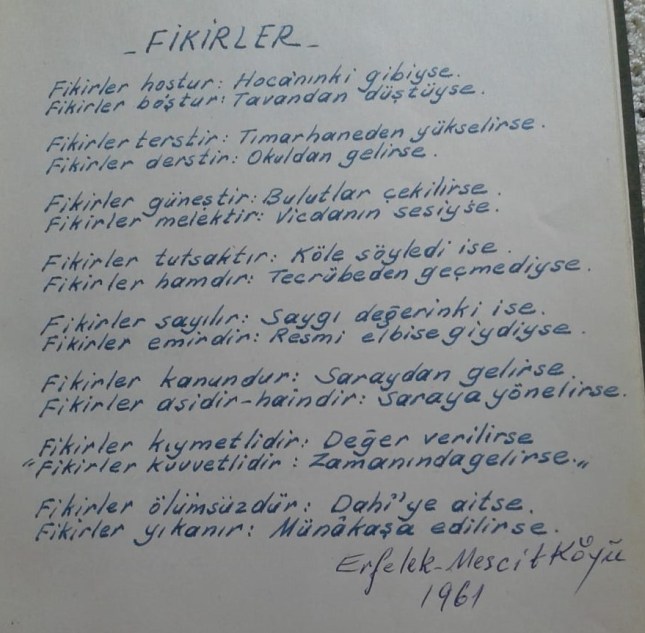 - FİKİRLER -
Fikirler hoştur: Hoca'nınki gibiyse.
Fikirler boştur: Tavandan düştüyse.
Fikirler terstir: Tımarhaneden yükselirse.
Fikirler derstir: Okuldan gelirse.
Fikirler güneştir: Bulutlar çekilirse.
Fikirler melektir: Vicdanın sesiyse.
Fikirler tutsaktır: Köle söyledi ise.
Fikirler hamdır: Tecrübeden geçmediyse.
Fikirler sayılır: Saygı değerinki ise.
Fikirler emirdir: Resmi elbise giydiyse.
Fikirler kanundur: Saraydan gelirse.
Fikirler asidir-haindir: Saraya yönelirse.
Fikirler kıymetlidir: Değer verilirse
"Fikirler kuvvetlidir: Zamanında gelirse."
Fikirler ölümsüzdür: Dahî'ye aitse.
Fikirler yıkanır: Münâkaşa edilirse.
Erfelek-Mescit Köyü
1961